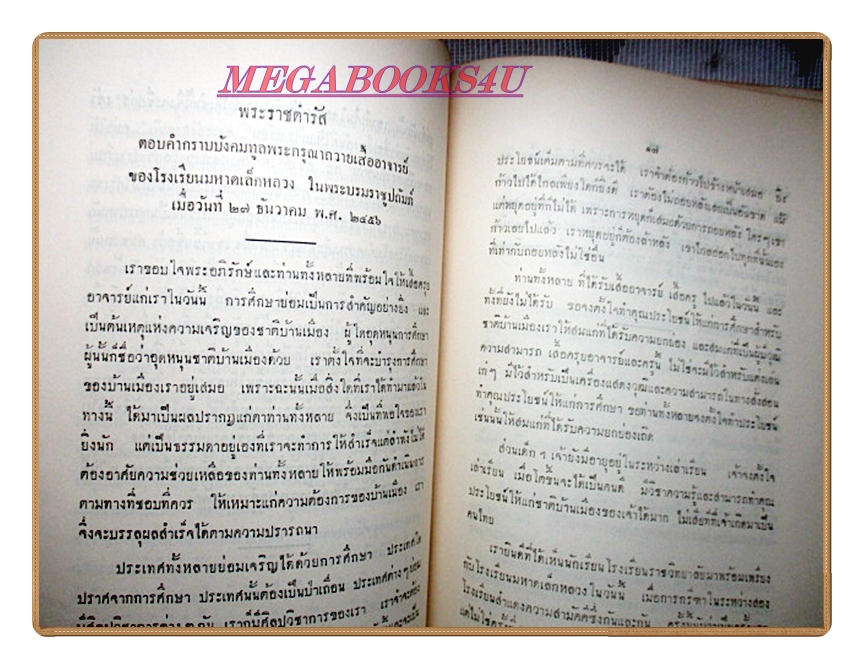 MEGABOOKS4U
พระราชดำรัส
ตอบคำกราบบังคมทูลพระกรุณาถวายเสื้ออาจารย์
ของโรงเรียนมหาดเล็กหลวง ในพระบรมราชูปถัมภ์
เมื่อวันที่ ๒๗ ธันวาคม พ.ศ. ๒๔๕๖
เราขอบใจพระอภิรักษ์และท่านทั้งหลายที่พร้อมใจให้เสื้อครุย
อาจารย์แก่เราในวันนี้ การศึกษาย่อมเป็นการสำคัญอย่างยิ่ง และ
เป็นต้นเหตุแห่งความเจริญของชาติบ้านเมือง ผู้ใดอุดหนุนการศึกษา
ผู้นั้นก็ชื่อว่าอุดหนุนชาติบ้านเมืองด้วย เราตั้งใจที่จะบำรุงการศึกษา
ของบ้านเมืองเราอยู่เสมอ เพราะฉะนั้นเมื่อสิ่งใดที่เราได้ทำมาแล้วใน
ทางนี้ ได้มาเป็นผลปรากฏแก่ตาท่านทั้งหลาย จึ่งเป็นที่พอใจของเรา
ยิ่งนัก แต่เป็นธรรมดาอยู่เองที่เราจะทำการให้สำเร็จแต่ลำพังไม่ได้
ต้องอาศัยความช่วยเหลือของท่านทั้งหลายให้พร้อมมือกันดำเนินการ
ตามทางที่ชอบที่ควร ให้เหมาะแก่ความต้องการของบ้านเมือง เรา
จึ่งจะบรรลุผลสำเร็จได้ตามความปรารถนา
ประเทศทั้งหลายย่อมเจริญได้ด้วยการศึกษา ประเทศใด
ปราศจากการศึกษา ประเทศนั้นต้องเป็นป่าเถื่อน ประเทศต่างๆ ย่อม
มีศิลปวิชาการต่าง ๆ กัน เราก็มีศิลปวิชาการของเรา เราจำจะต้อง
๑๗
ประโยชน์เต็มตามที่ควรจะได้ เราจำต้องก้าวไปข้างหน้าเสมอ ยิ่ง
ก้าวไปได้ไกลเพียงใดก็ยิ่งดี เราต้องไม่ถอยหลังเลยเป็นอันขาด แม้
แต่หยุดอยู่ที่ก็ไม่ได้ เพราะการหยุดก็เสมอด้วยการถอยหลัง ใครๆ เขา
ก้าวเลยไปแล้ว เราหยุดอยู่ก็ต้องล้าหลัง
ที่เท่ากับถอยหลังไม่ใช่อื่น
ท่านทั้งหลาย ที่ได้รับเสื้ออาจารย์ เสื้อครู ไปแล้วในวันนี้ และ
ทั้งที่ยังไม่ได้รับ ขอจงตั้งใจทำคุณประโยชน์ให้แก่การศึกษาสำหรับ
ชาติบ้านเมืองเราให้สมแก่ที่ได้รับความยกย่อง และสมแก่ที่เป็นผู้มีวุฒิ
ความสามารถ เสื้อครุยอาจารย์และครูนั้น ไม่ใช่จะมีไว้สำหรับแต่งเล่น
เก๋ๆ มีไว้สำหรับเป็นเครื่องแสดงวุฒิและความสามารถในทางสั่งสอน
ทำคุณประโยชน์ให้แก่การศึกษา ขอท่านทั้งหลายจงตั้งใจทำประโยชน์
เช่นนั้นให้สมแก่ที่ได้รับความยกย่องเถิด
ส่วนเด็ก ๆ เจ้ายังมีอายุอยู่ในระหว่างเล่าเรียน เจ้าจงตั้งใจ
เล่าเรียน เมื่อโตขึ้นจะได้เป็นคนดี มีวิชาความรู้และสามารถทำคุณ
ประโยชน์ให้แก่ชาติบ้านเมืองของเจ้าได้มาก ไม่เสียทีที่เจ้าเกิดมาเป็น
คนไทย
เรายินดีที่ได้เห็นนักเรียนโรงเรียนราชวิทยาลัยมาพร้อมเพรียง
กับโรงเรียนมหาดเล็กหลวงในวันนี้ เมื่อการกรีฑาในระหว่างสอง
โรงเรียนสำแดงความสามัคคีซึ่งกันและกัน